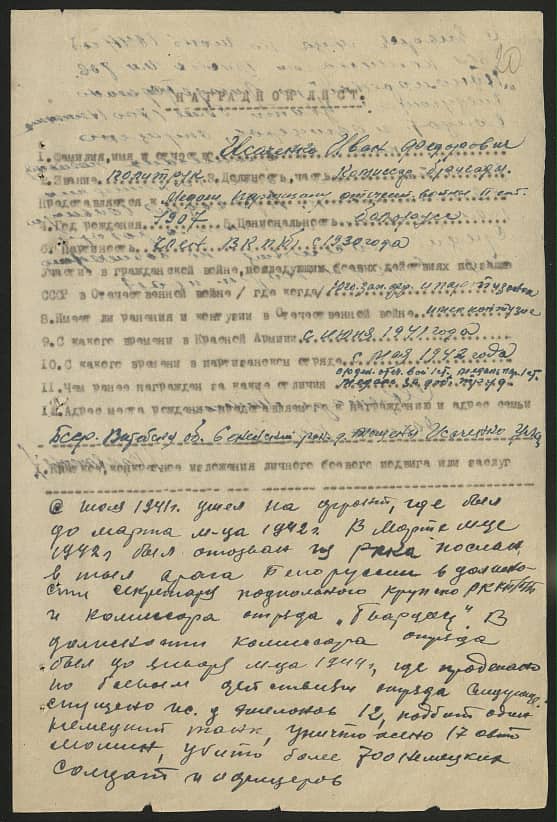 20
НАГРАДНОЙ ЛИСТ.
1. Фамилия, имя и отчество Исаченко Иван Федорович
2. Звание политрук 3. Должность, часть Комиссар бригады
Представляется к Медали партизану отечест. войны II ст.
4. Год рождения 1907 5. Национальность белорус
6. Партийность член ВКП(б) с 1930 года
Участие в гражданской войне, последующих боевых действиях по защите
СССР в Отечественной войне /где когда/ Юго зап. фр. и парт.
8. Имеет ли ранения и контузии в Отечественной войне
9. С какого времени в Красной Армии с июня 1941 года
10. С какого времени в партизанском отряде с мая 1942 года
орден. отеч. вой I ст.
11. Чем ранее награжден за какие отличия
12. Адрес места рождения представляемого к награждению и адрес семьи
Бсср. Витебская об. Сенненский район д. Исаченко
Краткое, конкретное изложения личного боевого подвига или заслуг
С июля 1941г. ушел на фронт, где был
до марта м-ца 1942г. В Марте м-це
1942г был отозван из РККА послан
в тыл врага Белоруссии в должно-
сти секретаря подпольного
и комиссара отряда „Гвардец". В
должности комиссара отряда
был до января м-ца 1944г, где проделано
по боевым действиям отряда следующее:
спущено ж.д эшелонов 12, подбит один
немецкий танк, уничтожено 17 авто
машин, убито более 700 немецких
солдат и офицеров